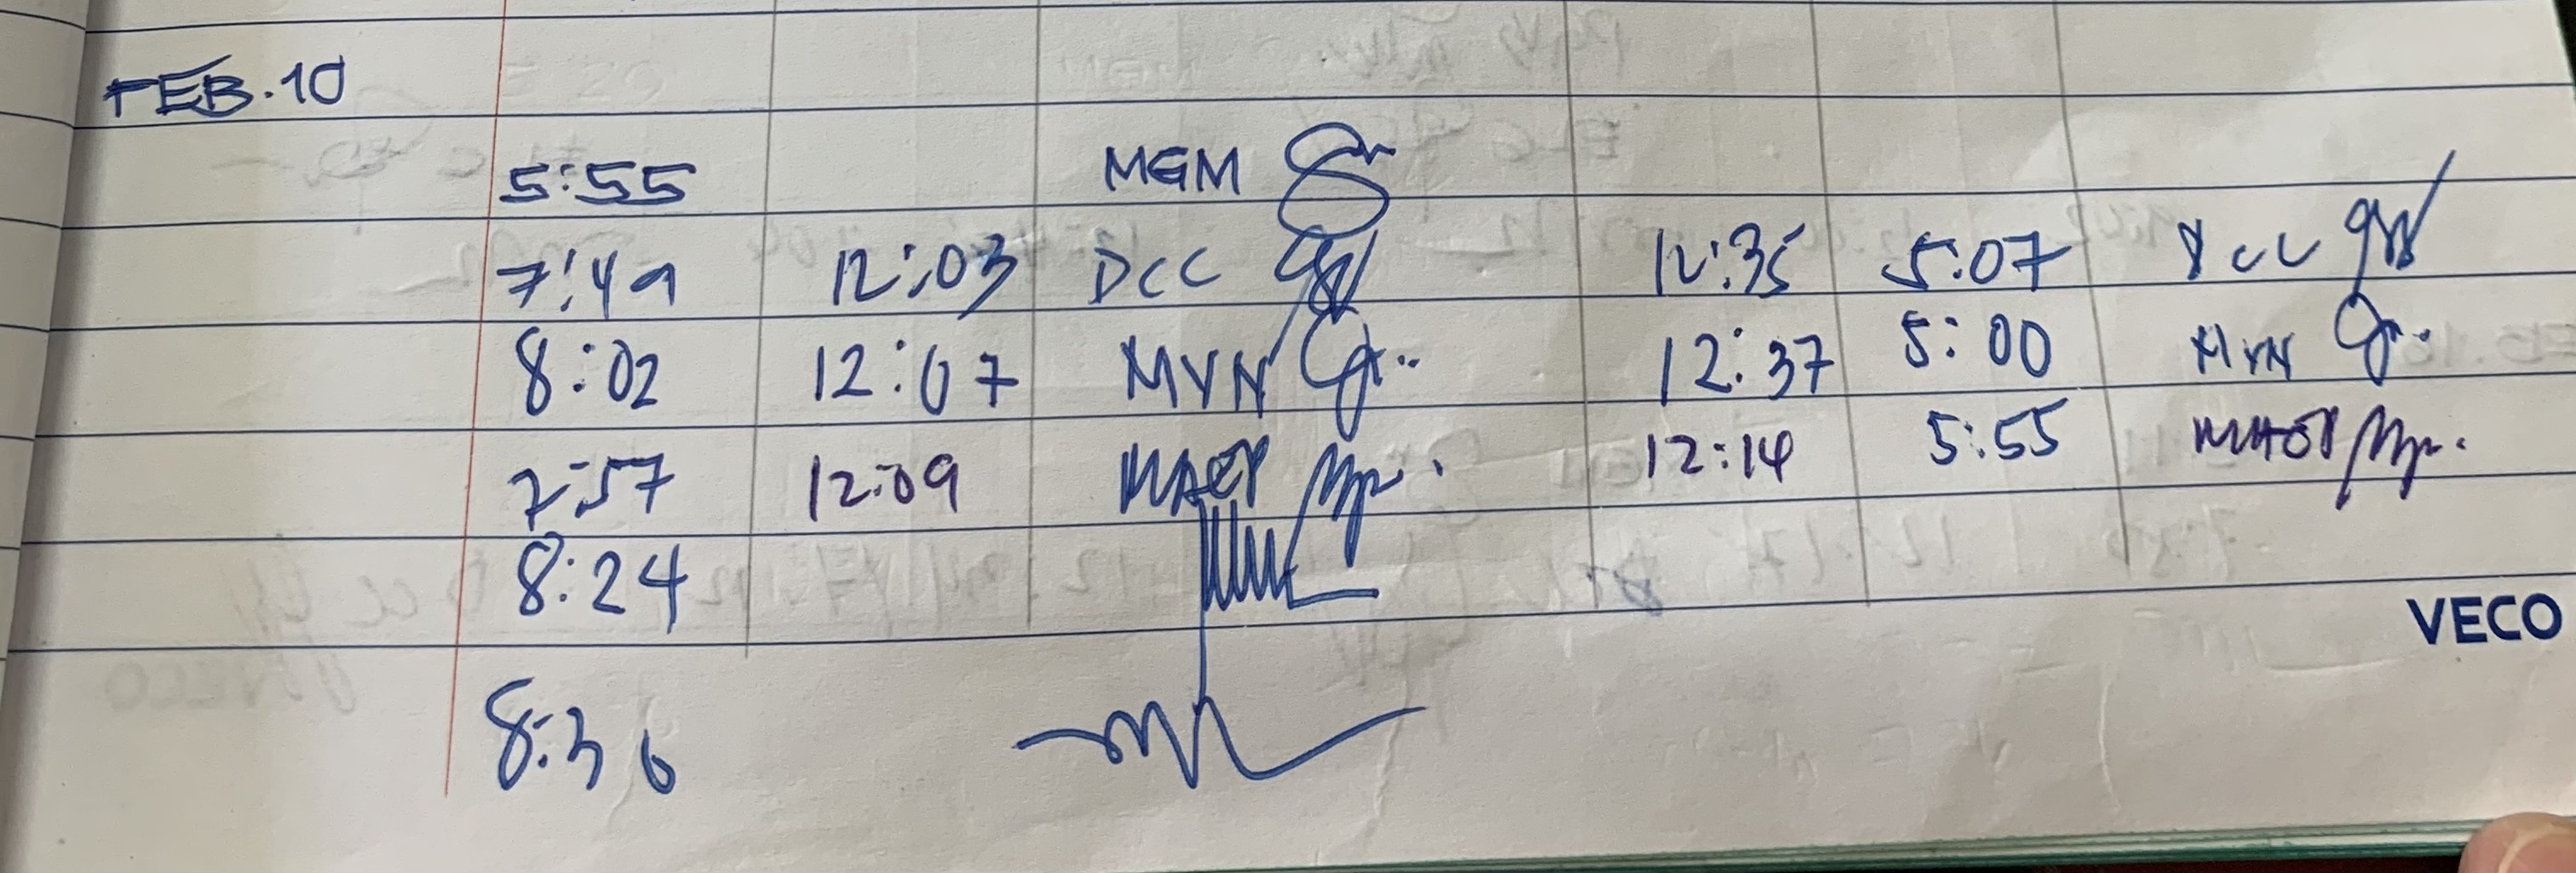 FEB. 10
5:55 MGM
7:49 12:03 DCC 12:35 5:07 DCC
8:02 12:07 MVN 12:37 5:00 MVN
7:57 12:09 12:14 5:55
8:24
8:36
VECO